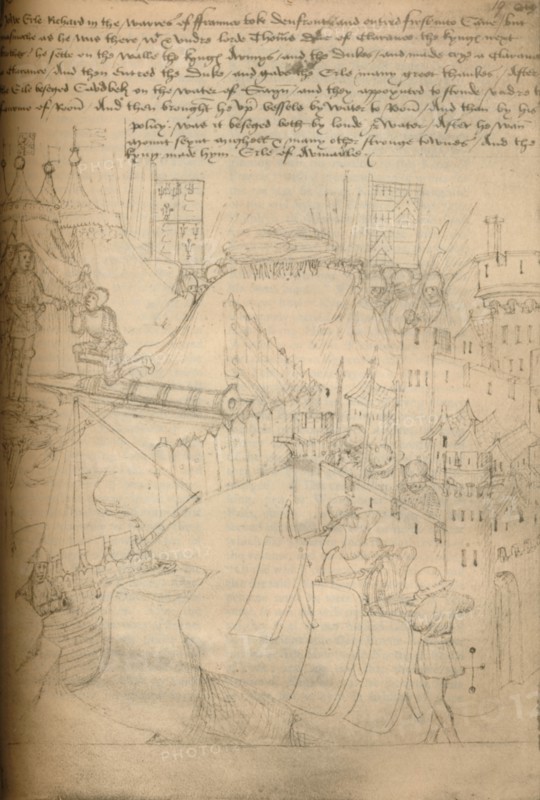 Erle Richard in the warres of ffraunce toke Denfront and entred first into Cane but
as he was there w^t x vndre lorde Thom͠s Duc of Clarance the kyngꝭ next
brother / he sette on the walle the kyngꝭ Armys / and the Dukes / and made crye a Clarance
a Clarance. And then entred the Duke / and gave the Erle many greet thankes / After
the Erle beseged Cawdbek on the water of Sayn / and they appoynted to stonde vndre
of Roon̄ And then brought he vp vessels by water to Roon̄ / And then by his
policy was it beseged both by londe & water / After he wan
mount seynt mighell & many other stronge townes / And the
kyng made hym Erle of Aumarle
PHOTO12